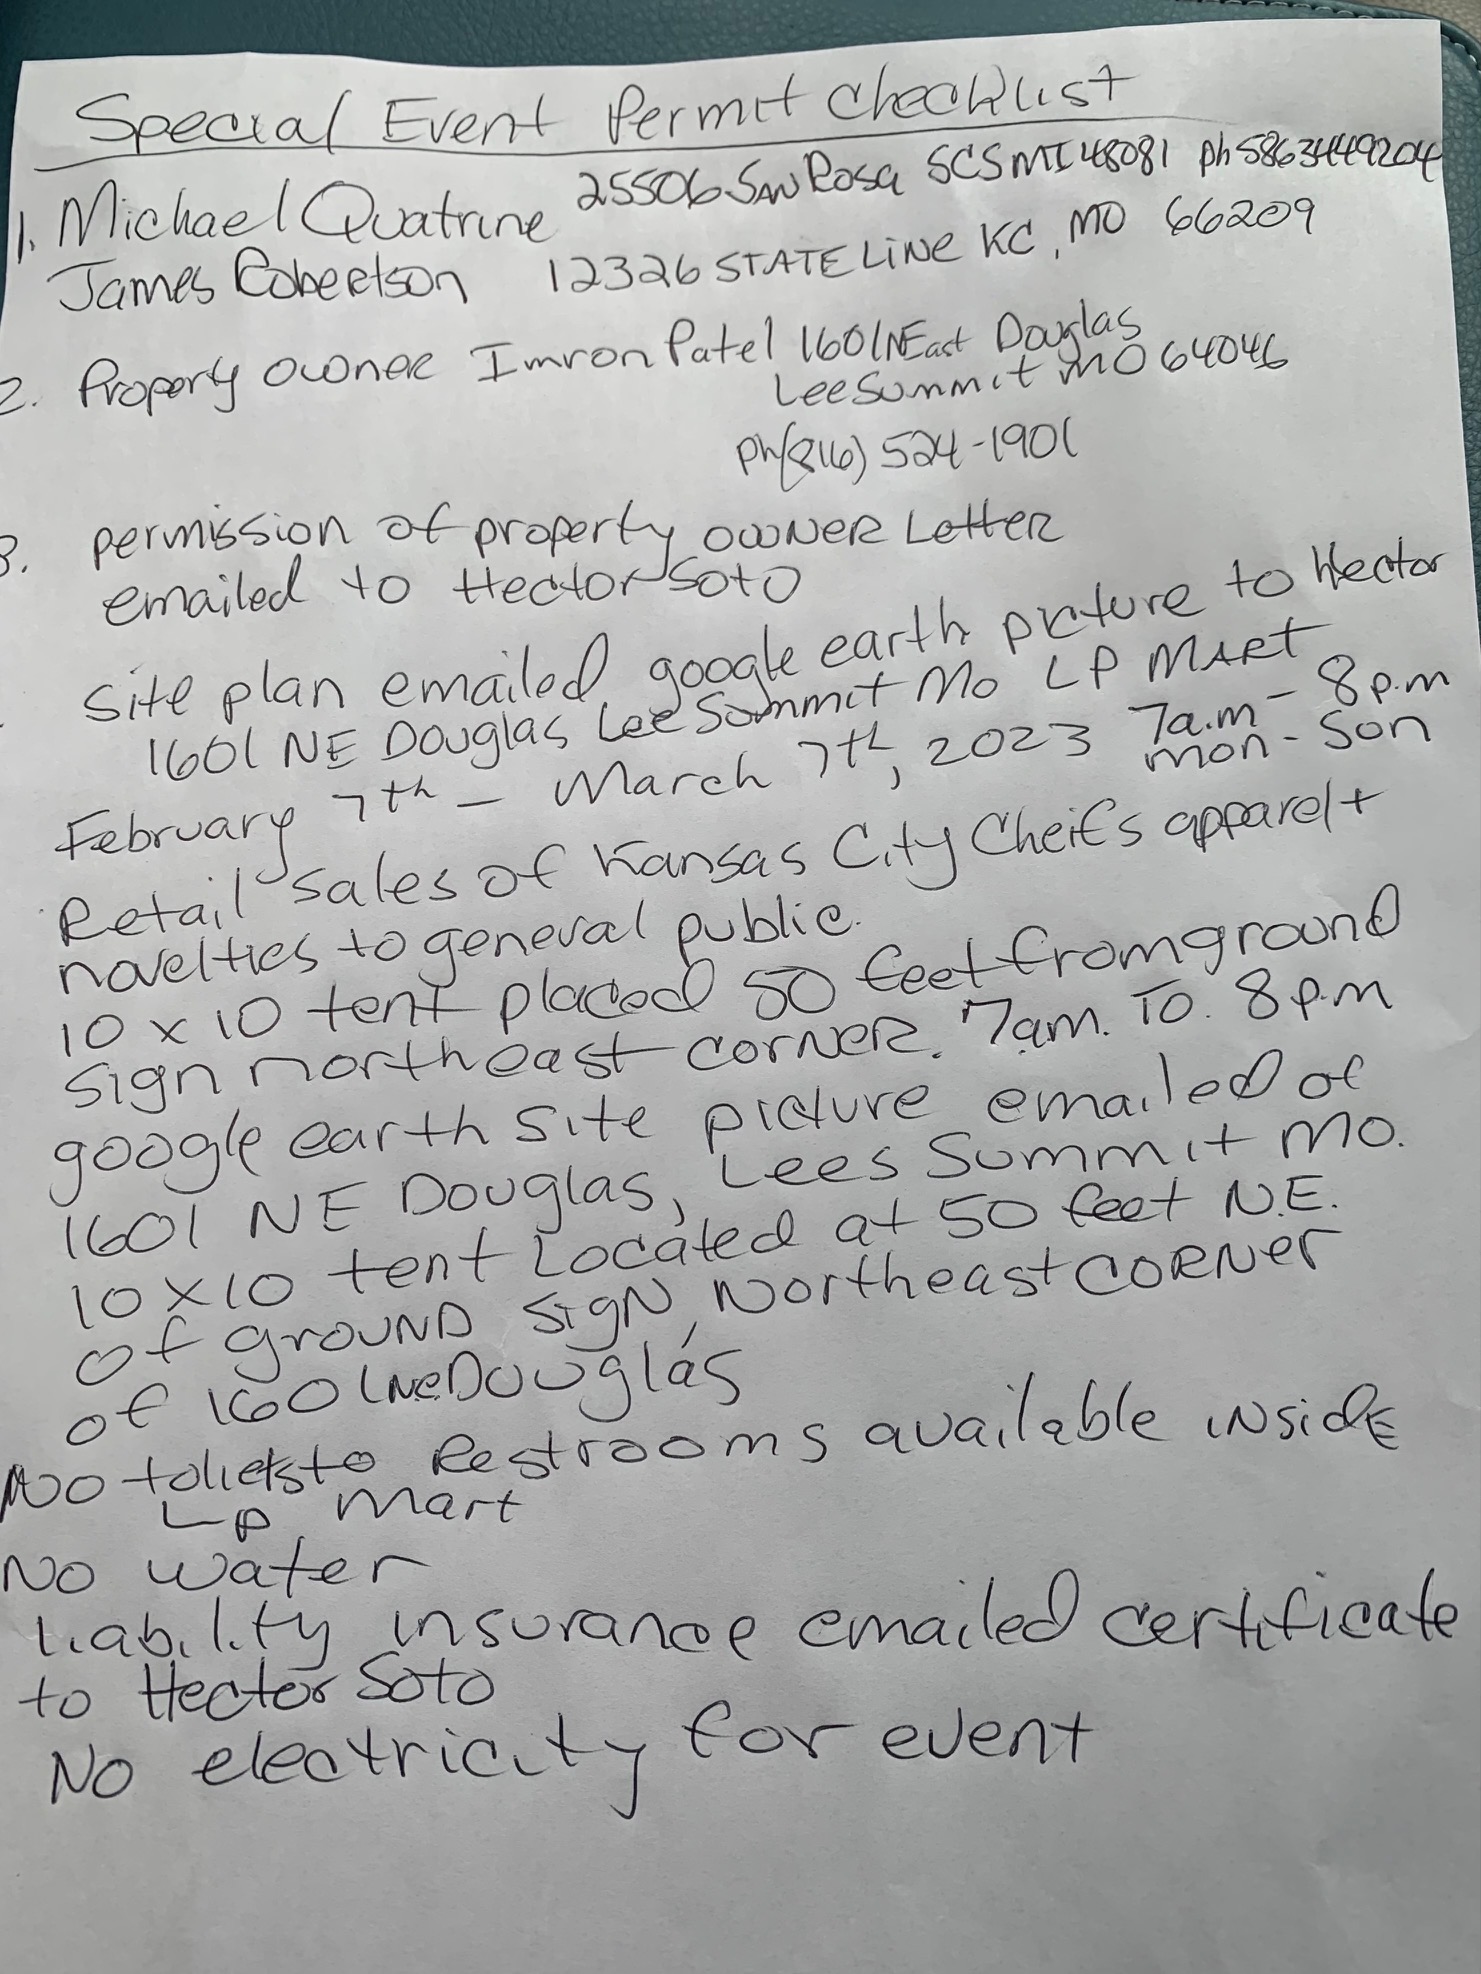 Special Event Permit Checklist
1. Michael Quatrine 25506 San Rosa SCS MI 48081 ph 5863449204
James Robertson 12326 STATE LINE KC, MO 66209
2. Property owner Imron Patel 1601 NEast Douglas
Lee Summit MO 64046
Ph (816) 524-1901
3. permission of property owner Letter
emailed to Hector Soto
site plan emailed google earth picture to Hector
1601 NE Douglas Lee Summit Mo LP MART
February 7th - March 7th, 2023 7a.m - 8p.m
mon - Son
Retail sales of Kansas City Cheifs apparel +
novelties to general public.
10 x 10 tent placed 50 feet from ground
sign northeast corner. 7am. To. 8 p.m
google earth site picture emailed of
1601 NE Douglas, Lees Summit Mo.
10 x 10 tent Located at 50 feet N.E.
of ground sign, Northeast corner
of 1601 Ne Douglas
No Restrooms available inside
LP Mart
No water
Liability insurance emailed certificate
to Hector Soto
No electricity for event